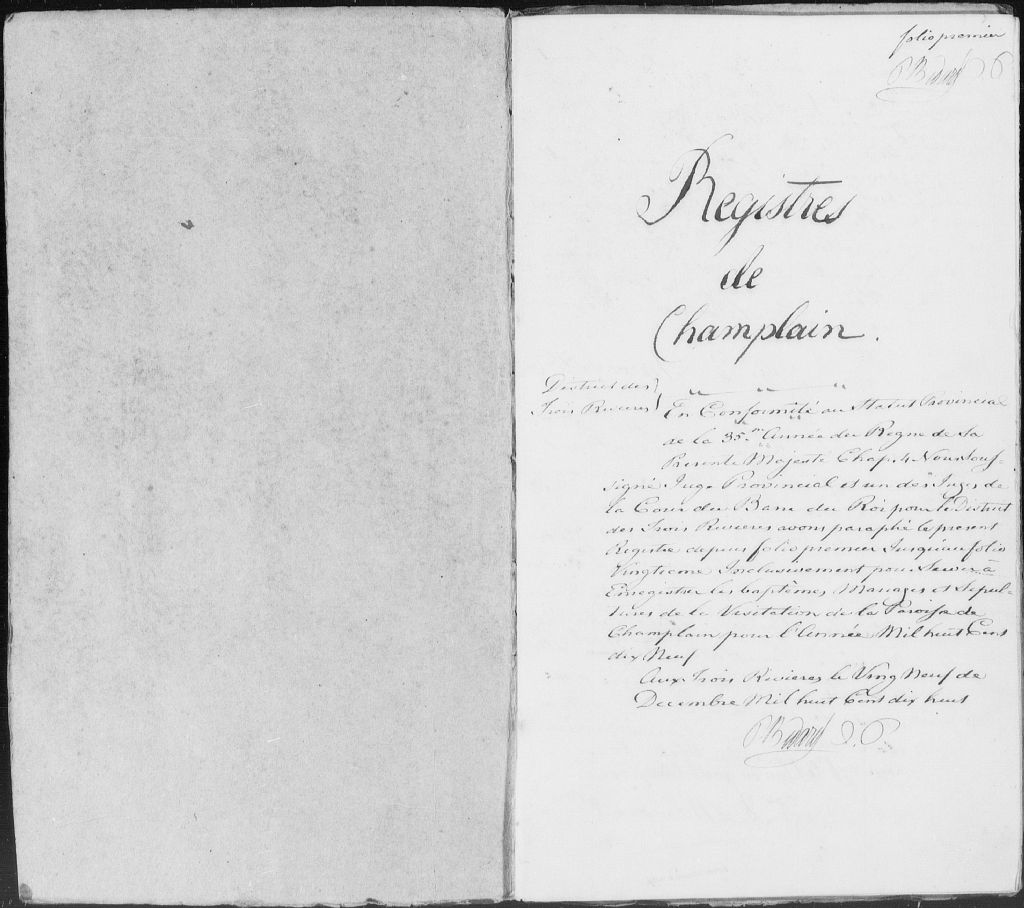 folio premier
P Bedard J. P.
Registres
de
Champlain.
District des
Trois Rivieres
En Conformité au Statut Provincial
de la 35.me Année du Regne de Sa
Presente Majesté Chap. 4 Nous Sous-
signé Juge Provincial et un des Juges de
la Cour du Banc du Roi pour le District
des Trois Rivieres avons paraphé le present
Registre depuis folio premier Jusqu'au folio
Vingtieme Inclusivement pour Servir à
Enregistrer les baptêmes Mariages et Sepul-
tures de la Visitation de la Paroisse de
Champlain pour l'Année Mil huit Cent
dix Neuf
Aux Trois Rivieres le Ving Neuf de
Decembre Mil huit Cent dix huit
P Bedard J. P.